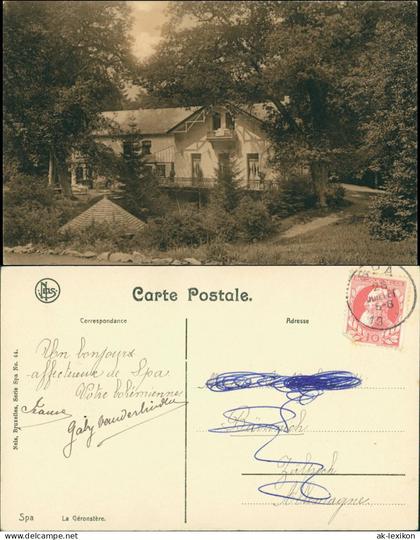 Carte Postale.
Correspondance
Adresse
Un bonjour
affectueux de Spa
Votre bohimiennes
France
Gaby Vanderlinden
Allemagne
SPA
JUILLET
13
10
Nels, Bruxelles, Série Spa No. 44.
Spa La Géronstère.
www.ak-lexikon.de